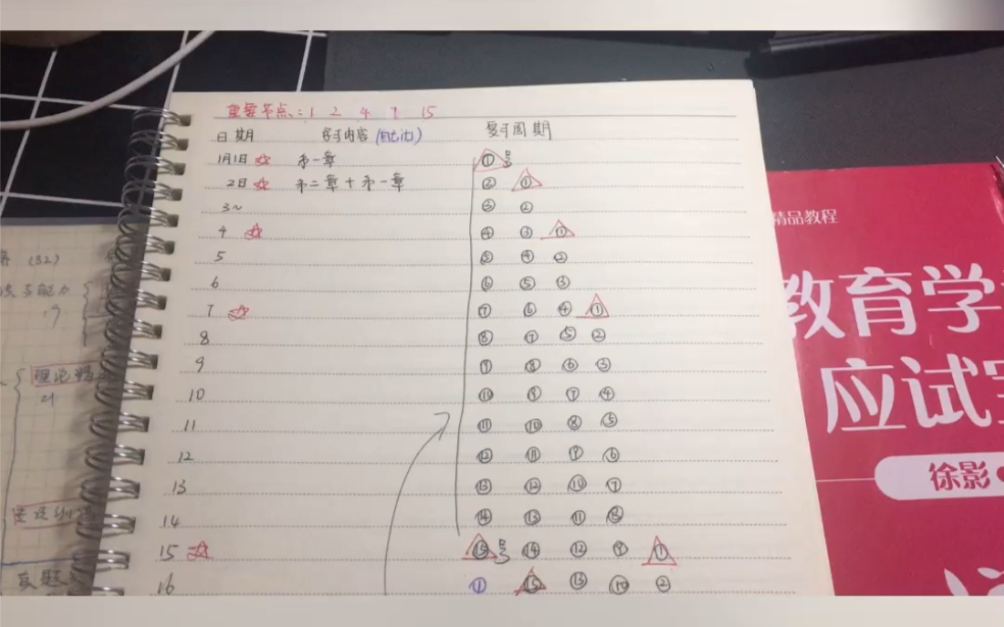 重要节点：1 2 4 7 15
日期 学习内容(自己记) 复习周期
1月1日 ☆ 第一章 ① 号
2日 ☆ 第二章+第一章 ② ①
3~ ③ ②
4 ☆ ④ ③ ①
5 ⑤ ④ ②
6 ⑥ ⑤ ③
7 ☆ ⑦ ⑥ ④ ①
8 ⑧ ⑦ ⑤ ②
9 ⑨ ⑧ ⑥ ③
10 ⑩ ⑨ ⑦ ④
11 ⑪ ⑩ ⑧ ⑤
12 ⑫ ⑪ ⑨ ⑥
13 ⑬ ⑫ ⑩ ⑦
14 ⑭ ⑬ ⑪ ⑧
15 ☆ ⑮ 号 ⑭ ⑫ ⑨ ①
16 ① ⑮ ⑬ ⑩ ②
(32)
能力
真题
精品教程
教育学
应试
徐影